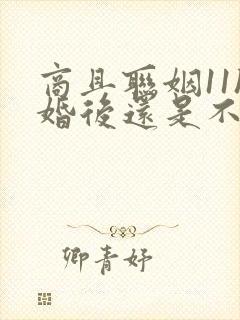 商且聯姻11
婚後還是不
卿青妤